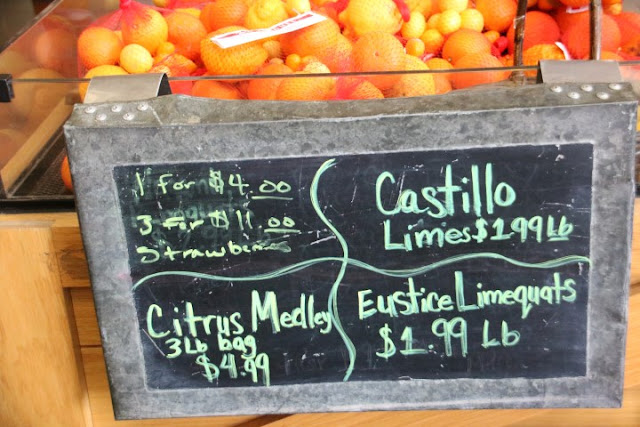 1 for $4.00
3 for $11.00
Strawberries
Castillo
Limes $1.99 Lb
Citrus Medley
3Lb bag
$4.99
Eustice Limequats
$1.99 Lb